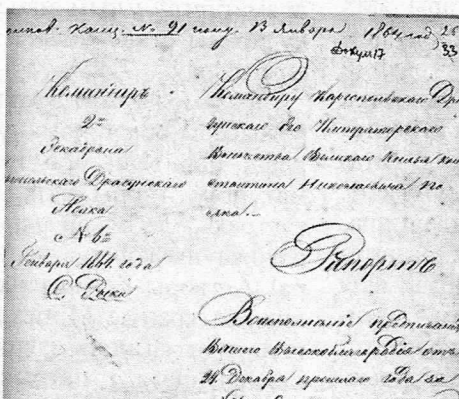 Канц. № 91 13 Января 1864 год 26
33
Командиръ
2го
Эскадрона
Драгунскаго
Полка
№ 6
Января 1864 года
Командиру Каргопольскаго Дра
гунскаго Его Императорскаго
Высочества Великаго Князя Кон
стантина Николаевича По
лка.
Рапортъ
Во исполненіе предписанія
Вашего Высокоблагородія отъ
24 Декабря прошлаго года за